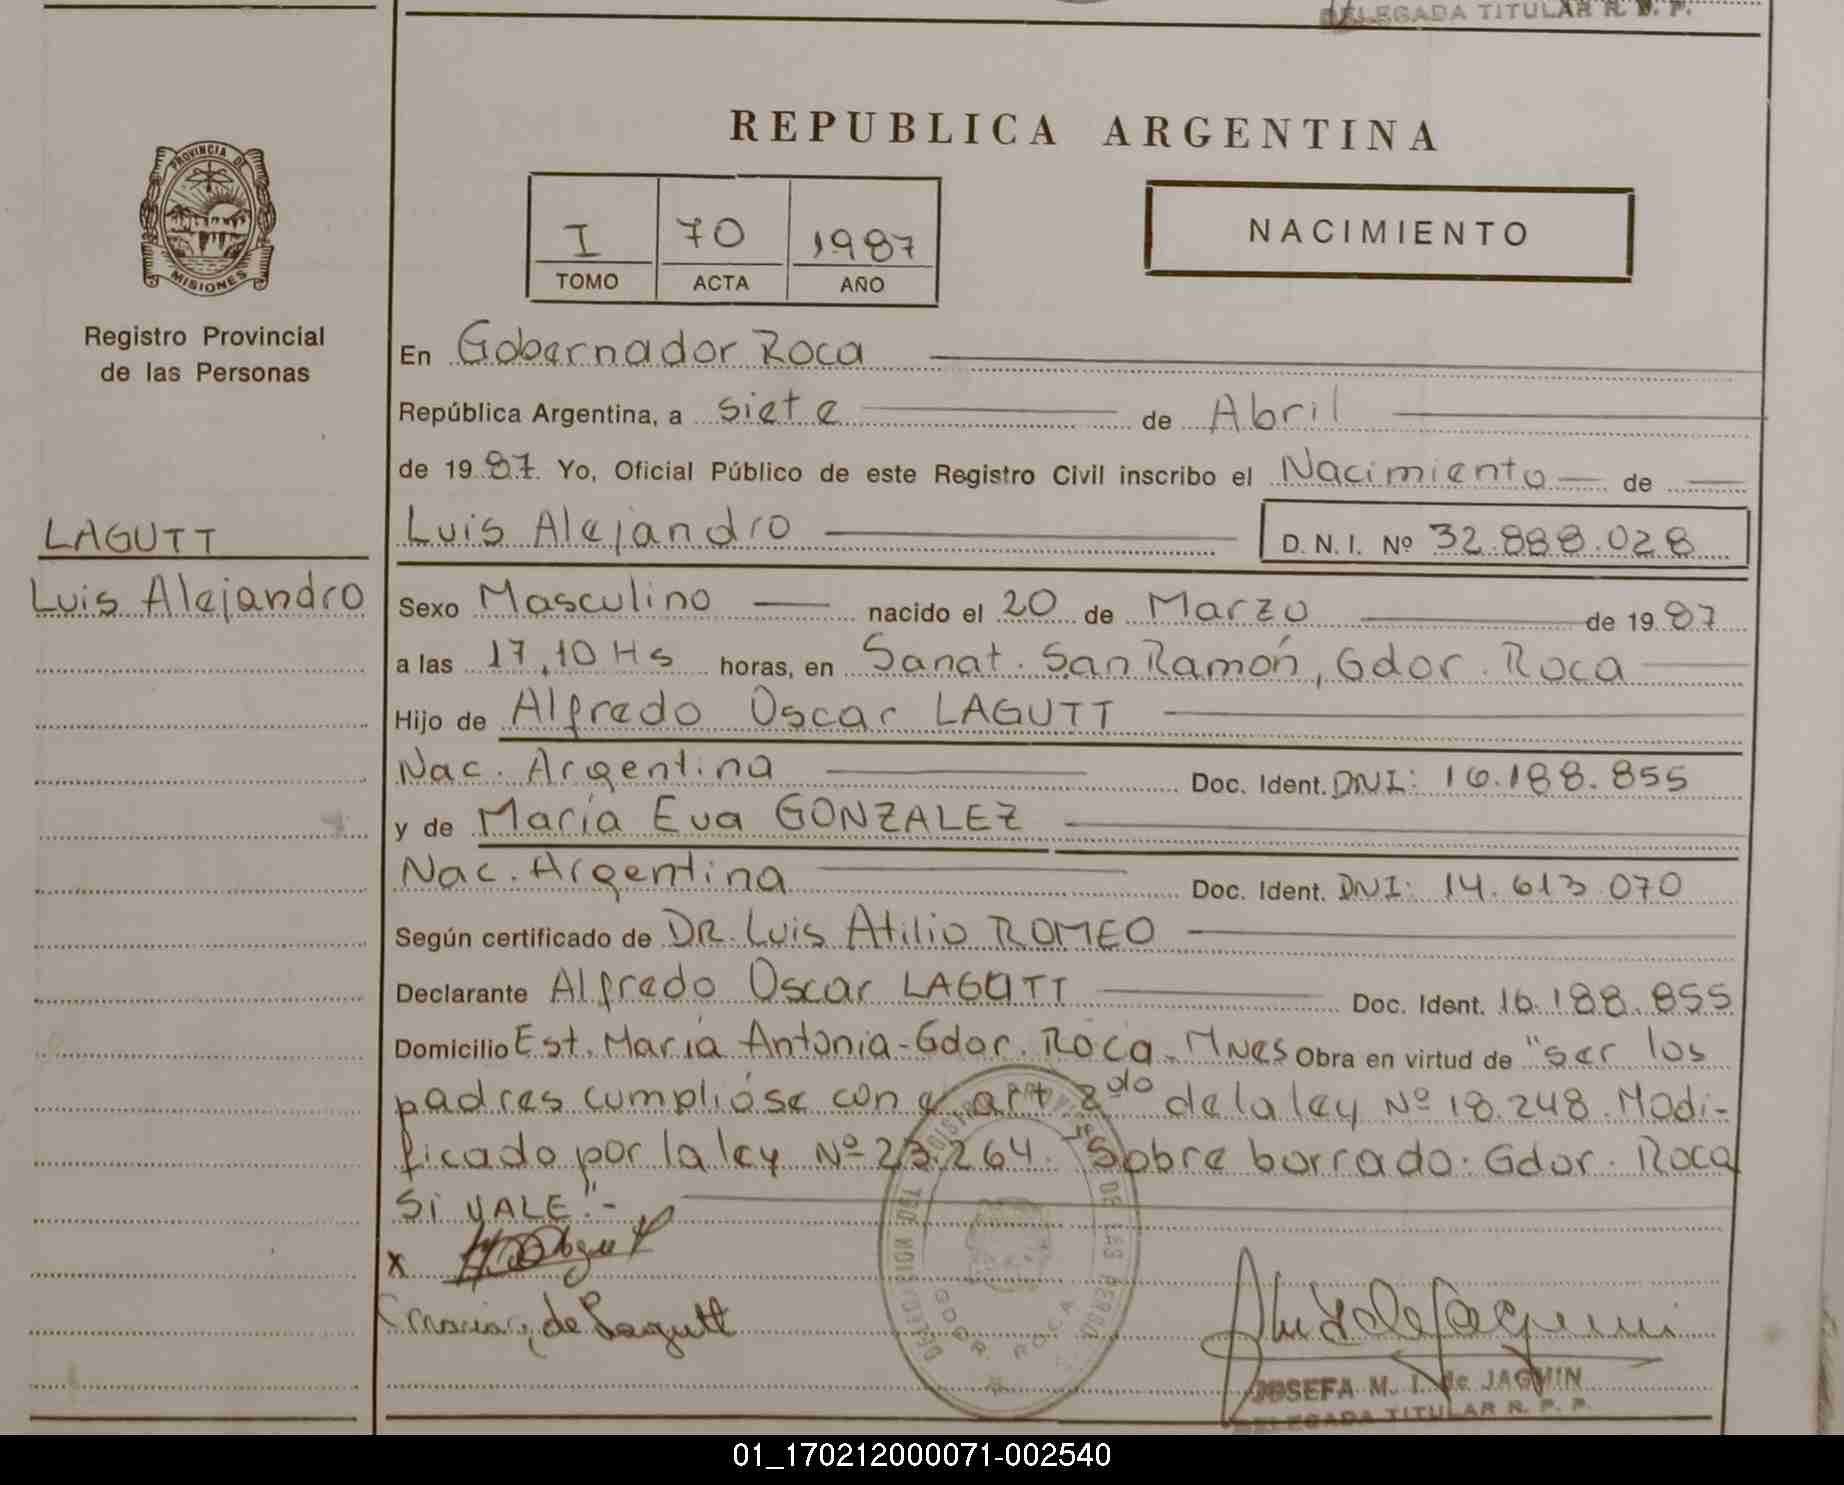 DELEGADA TITULAR R. P. P.
REPUBLICA ARGENTINA
PROVINCIA DE
MISIONES
Registro Provincial
de las Personas
I 70 1987
TOMO ACTA AÑO
NACIMIENTO
LAGUTT
Luis Alejandro
En Gobernador Roca
República Argentina, a siete de Abril
de 1987. Yo, Oficial Público de este Registro Civil inscribo el Nacimiento de
Luis Alejandro D. N. I. Nº 32.888.028
Sexo Masculino nacido el 20 de Marzo de 1987
a las 17,10 Hs horas, en Sanat. San Ramón, Gdor. Roca
Hijo de Alfredo Oscar LAGUTT
Nac. Argentina Doc. Ident. DNI: 16.188.855
y de María Eva GONZALEZ
Nac. Argentina Doc. Ident. DNI: 14.613.070
Según certificado de DR. Luis Atilio ROMEO
Declarante Alfredo Oscar LAGUTT Doc. Ident. 16.188.855
Domicilio Est. María Antonia-Gdor. Roca. Mnes Obra en virtud de "ser los
padres cumplióse con e art 2do de la ley Nº 18.248. Modi-
ficado por la ley Nº 23.264. "Sobre borrado: Gdor. Roca
SI VALE".-
x
Maria de Lagutt
DELEGACION DEL REGISTRO PROVINCIAL DE LAS PERSONAS
GDOR. ROCA
JOSEFA M. I. de JAGMIN
DELEGADA TITULAR R. P. P.
01_170212000071-002540